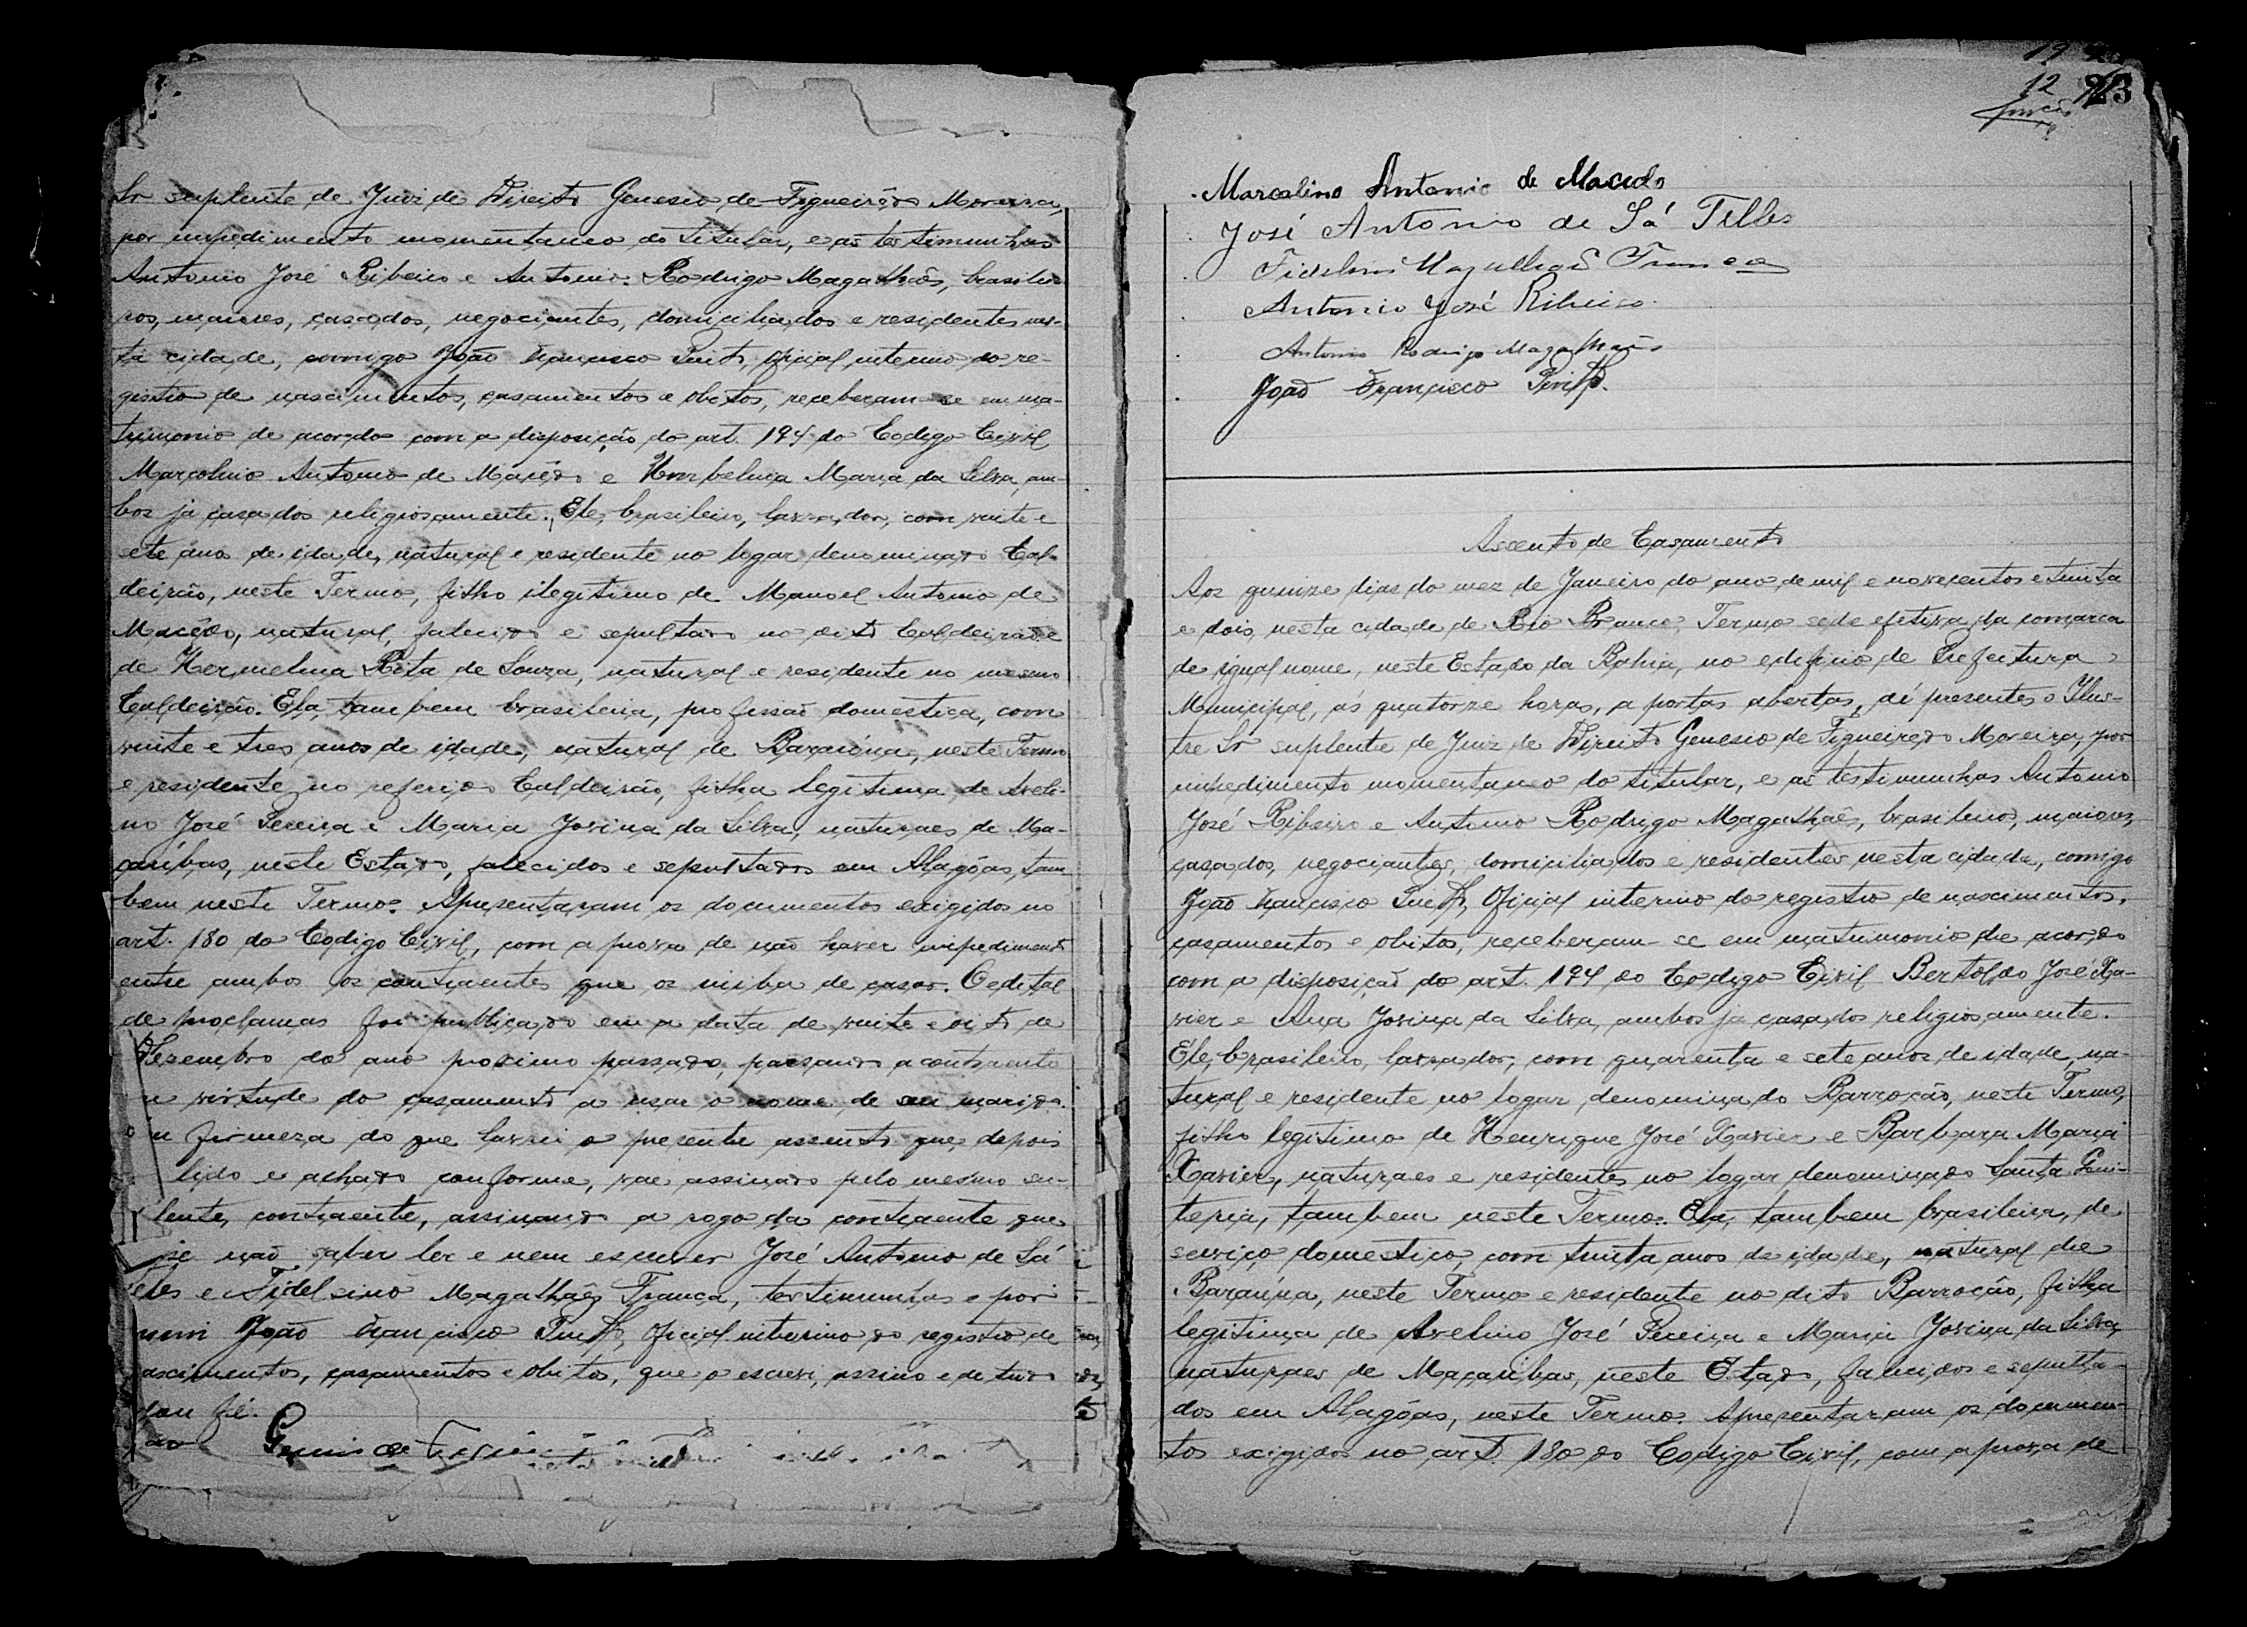 Sr suplente de Juiz de Direito Genesio de Figueirêdo Moreira,
por impedimento momentaneo do titular, e as testimunhas
Antonio José Ribeiro e Antonio Rodrigo Magalhães, brasilei-
ros, maiores, casados, negociantes, domiciliados e residentes nes-
ta cidade, comigo João Francisco Pinto, oficial interino do re-
gistro de nascimentos, casamentos e obitos, receberam-se em ma-
trimonio de acordo com a disposição do art. 194 do Codigo Civil
Marcolino Antonio de Macêdo e Umbelina Maria da Silva, am-
bos já casados religiosamente. Ele, brasileiro, lavrador, com vinte e
sete anos de idade, natural e residente no logar denominado Cal-
deirão, neste Termo, filho ilegitimo de Manoel Antonio de
Macêdo, natural, falecido e sepultado no dito Caldeirão e
de Hermelina Rita de Souza, natural e residente no mesmo
Caldeirão. Ela, tambem brasileira, profissão domestica, com
vinte e tres anos de idade, natural de Baraúna, neste Termo
e residente no referido Caldeirão, filha legitima de Aveli-
no José Pereira e Maria Jovina da Silva, naturaes de Ma-
caúbas, neste Estado, falecidos e sepultados em Alagôas, tam
bem neste Termo. Apresentaram os documentos exigidos no
art. 180 do Codigo Civil, com a prova de não haver impedimento
entre ambos os contraentes que os iniba de casar. O edital
de proclamas foi publicado em a data de vinte e oito de
Dezembro do ano proximo passado, passando a contraente
em virtude do casamento a usar o nome de seu marido.
Em firmeza do que lavrei o presente assento que, depois
lido e achado conforme, vae assinado pelo mesmo su-
lente, contraente, assinando a rogo da contraente que
não saber ler e nem escrever José Antonio de Sá
eles e Fidelsino Magalhães Franca, testimunhas e por
mim João Francisco Pinto, oficial interino do registro de
ascimentos, casamentos e obitos, que o escrevi, assino e de tudo
dou fé.
Genesio de Figueirêdo
19
12
23
Marcolino Antonio de Macedo
José Antonio de Sá Telles
Fidelsino Magalhães Franca
Antonio José Ribeiro.
Antonio Rodrigo Magalhães
João Francisco Pinto.
Assento de Casamento
Aos quinze dias do mez de Janeiro do ano de mil e novecentos e trinta
e dois, nesta cidade de Rio Branco, Termo sede efetiva da comarca
de igual nome, neste Estado da Bahia, no edificio de Prefeitura
Municipal, ás quatorze horas, a portas abertas, aí presentes o Ilus-
tre Sr suplente de Juiz de Direito Genesio de Figueiredo Moreira, por
impedimento momentaneo do titular, e as testimunhas Antonio
José Ribeiro e Antonio Rodrigo Magalhães, brasileiros, maiores,
casados, negociantes, domiciliados e residentes nesta cidade, comigo
João Francisco Pinto, Oficial interino do registro de nascimentos,
casamentos e obitos, receberam-se em matrimonio de acordo
com a disposição do art. 194 do Codigo Civil Bertoldo José Xa-
vier e Ana Jovina da Silva, ambos já casados religiosamente.
Ele, brasileiro, lavrador, com quarenta e sete anos de idade, na-
tural e residente no logar denominado Barrocão, neste Termo,
filho legitimo de Henrique José Xavier e Barbara Maria
Xavier, naturaes e residentes no logar denominado Santa Qui-
teria, tambem neste Termo. Ela, tambem brasileira, de
serviço domestico, com trinta anos de idade, natural de
Baraúna, neste Termo e residente no dito Barrocão, filha
legitima de Avelino José Pereira e Maria Jovina da Silva,
naturaes de Macaúbas, neste Estado, falecidos e sepulta-
dos em Alagôas, neste Termo. Apresentaram os documen-
tos exigidos no art. 180 do Codigo Civil, com a prova de